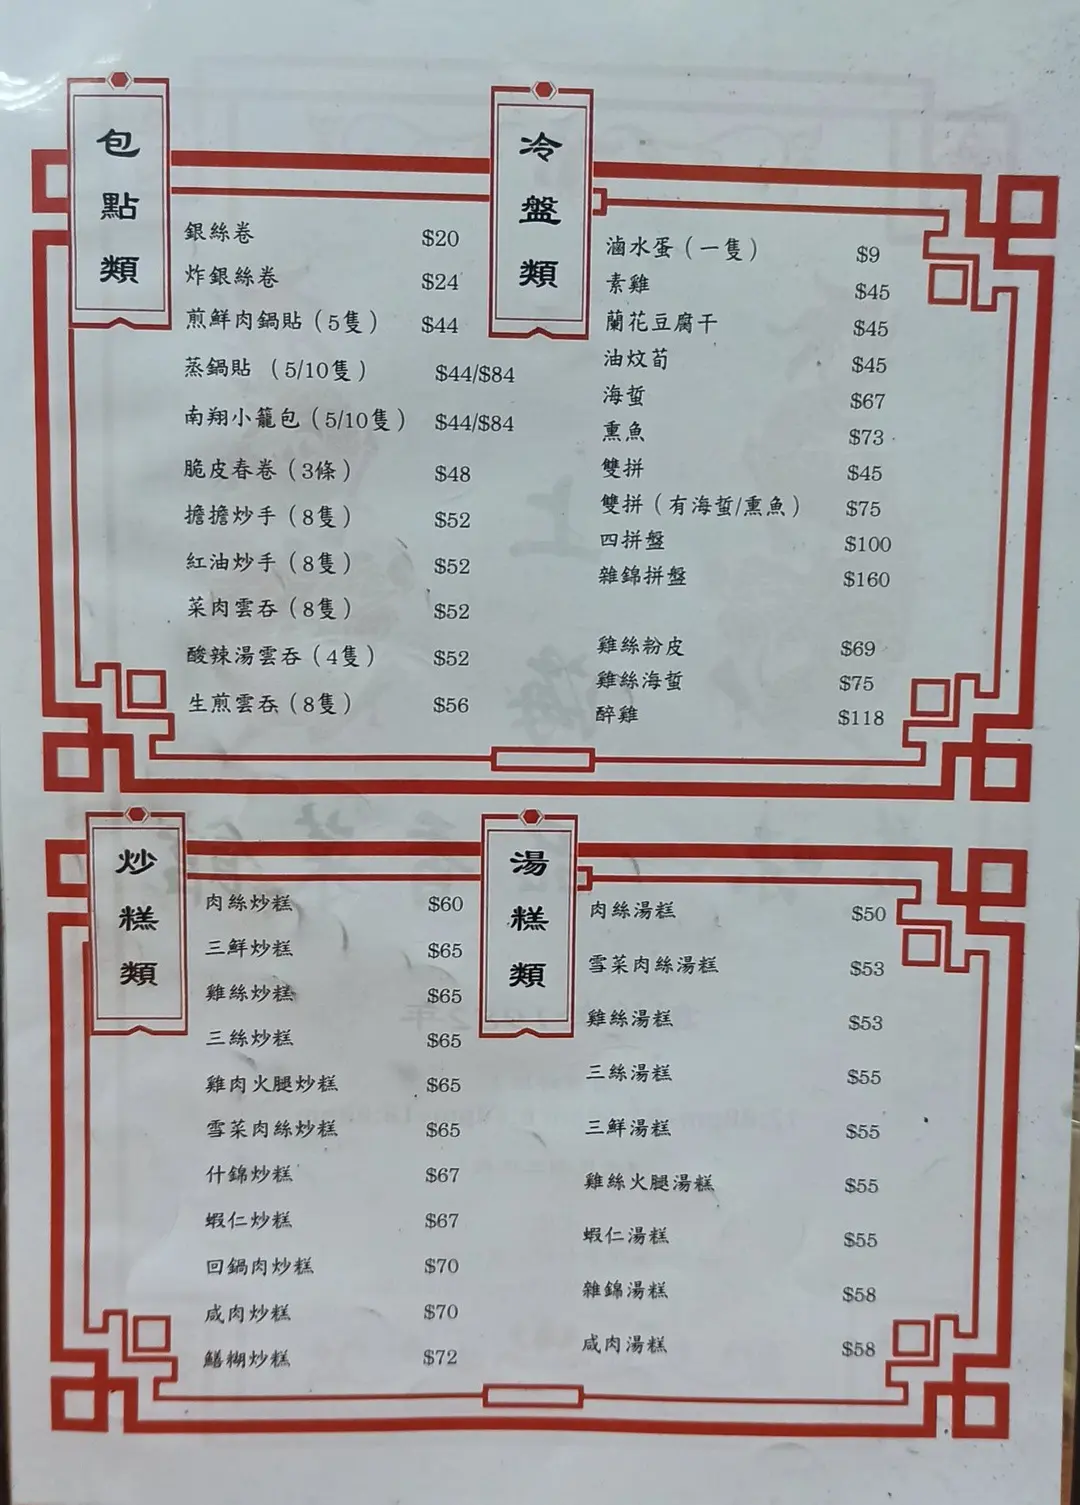 包點類
銀絲卷 $20
炸銀絲卷 $24
煎鮮肉鍋貼（5隻） $44
蒸鍋貼 （5/10隻） $44/$84
南翔小籠包（5/10隻） $44/$84
脆皮春卷（3條） $48
擔擔炒手（8隻） $52
紅油炒手（8隻） $52
菜肉雲吞（8隻） $52
酸辣湯雲吞（4隻） $52
生煎雲吞（8隻） $56
冷盤類
滷水蛋（一隻） $9
素雞 $45
蘭花豆腐干 $45
油炆荀 $45
海蜇 $67
熏魚 $73
雙拼 $45
雙拼（有海蜇/熏魚） $75
四拼盤 $100
雜錦拼盤 $160
雞絲粉皮 $69
雞絲海蜇 $75
醉雞 $118
炒糕類
肉絲炒糕 $60
三鮮炒糕 $65
雞絲炒糕 $65
三絲炒糕 $65
雞肉火腿炒糕 $65
雪菜肉絲炒糕 $65
什錦炒糕 $67
蝦仁炒糕 $67
回鍋肉炒糕 $70
咸肉炒糕 $70
鱔糊炒糕 $72
湯糕類
肉絲湯糕 $50
雪菜肉絲湯糕 $53
雞絲湯糕 $53
三絲湯糕 $55
三鮮湯糕 $55
雞絲火腿湯糕 $55
蝦仁湯糕 $55
雜錦湯糕 $58
咸肉湯糕 $58